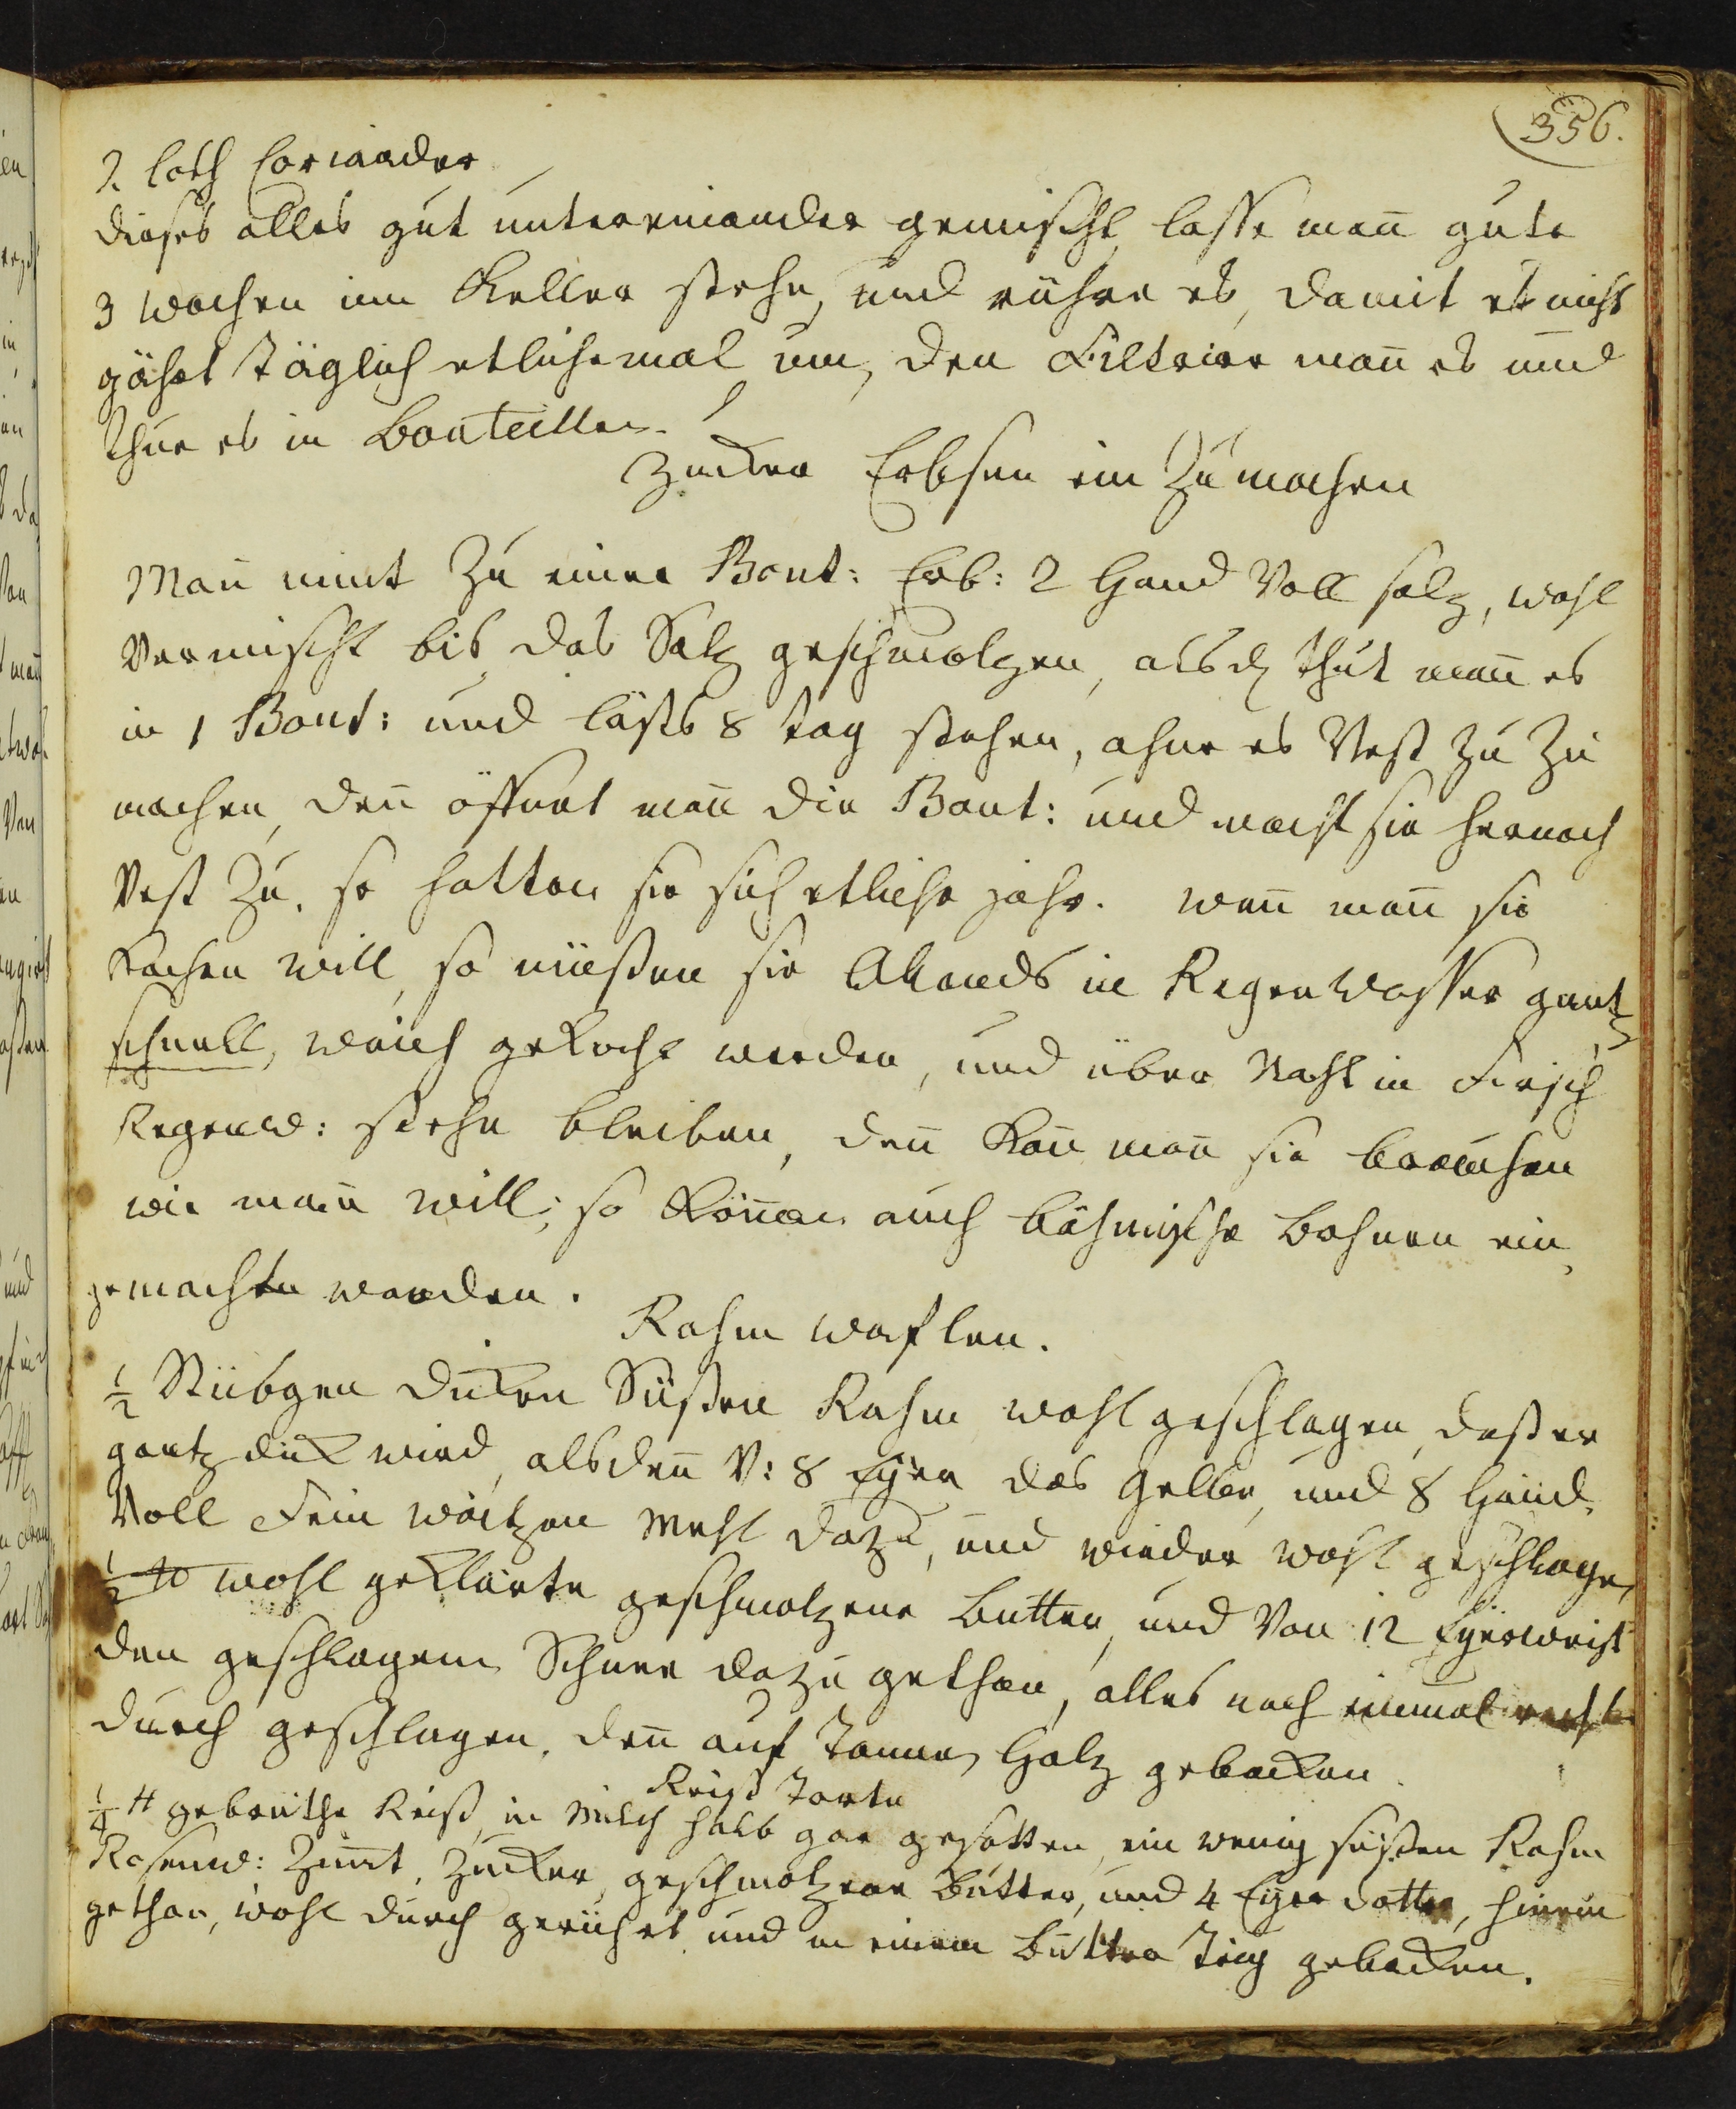 356.
2. loth Coriander
dieses alles gut untereinander gemischt, lasse man̄ gute
3 wochen im Keller stehn, und rühre es, damit es nicht
gähet täglich etlichemal um, den Filtrire man̄ es und
thue es in Bouteillen.
Zucker Erbsen ein Zu machen
Man̄ nimt Zu einer Bout: Erb: 2 Hand Voll saltz, wohl
Vermischt bis das Saltz geschmoltzen, alsd thut man̄ es
in 1 Bout: und läßts 8 tag stehen, ohne es Vest zu Zu
machen, den̄ öffnet man̄ die Bout: und macht sie hernach
Vest Zu. so halten sie sich etliche jahr. wan̄ man̄ sie
Kochen will, so müeßen sie Abends in Regen wasser gantz
schnell, weich gekocht werden, und über Nacht in Frisch
Regenw: stehn bleiben, den̄ Kan̄ man̄ sie brauchen
wie man̄ will; so Kön̄en auch böhmische bohnen ein
gemachtn werden.
Rahm waflen.
½ Stübgen dicken Süßen Rahm wohl geschlagen, daß er
gantz dick wird, alsden̄ V: 8 Eyer das gelbe, und 8 Händ
Voll Fein waitzen Mehl dazu, und wieder wohl geschlagen
½ ℔ wohl geklärte geschmoltzene butter, und Von 12 Eyerweiß
den geschlagenen Schnee dazu gethan, alles noch einmal recht
durch geschlagen, den̄ auf Tannen Holtz gebacken.
Reiß Torte
¼ ℔ gebrüthe Reiß, in Milch halb gar gesotten, ein wenig süßen Rahm
Rosenw: Zim̄t, Zucker, geschmoltzene butter, und 4 Eyer dotter, hinein
gethan, wohl durch gerühret und in einem butter Teig gebacken.